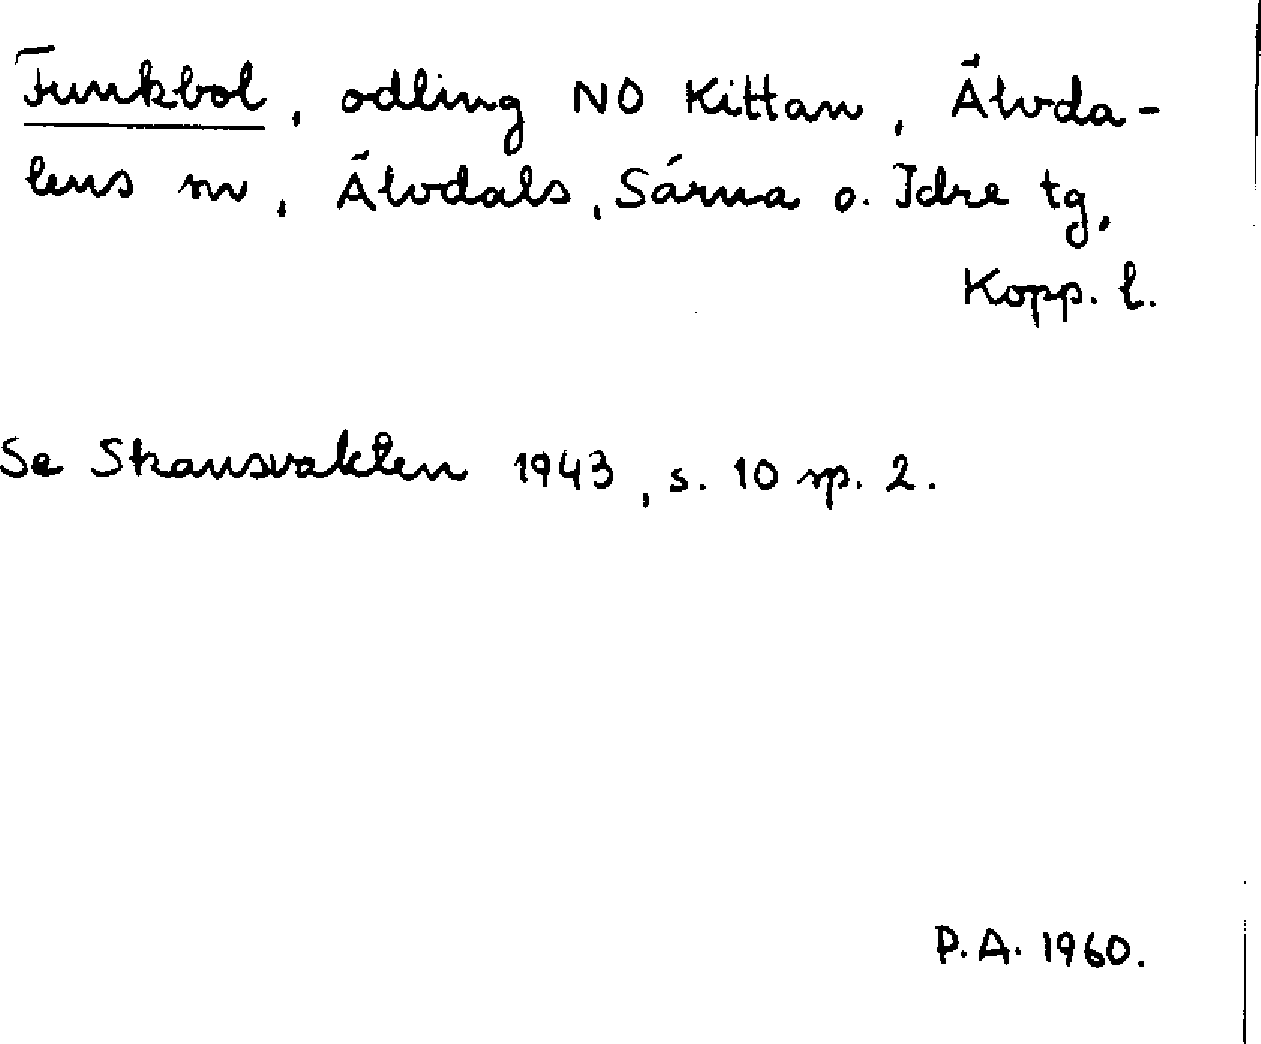 Funkbol, odling NO Kittan, Älvda-
lens sn, Älvdals, Särna o. Idre tg,
Kopp. l.
Se Skansvakten 1943, s. 10 sp. 2.
P.A. 1960.